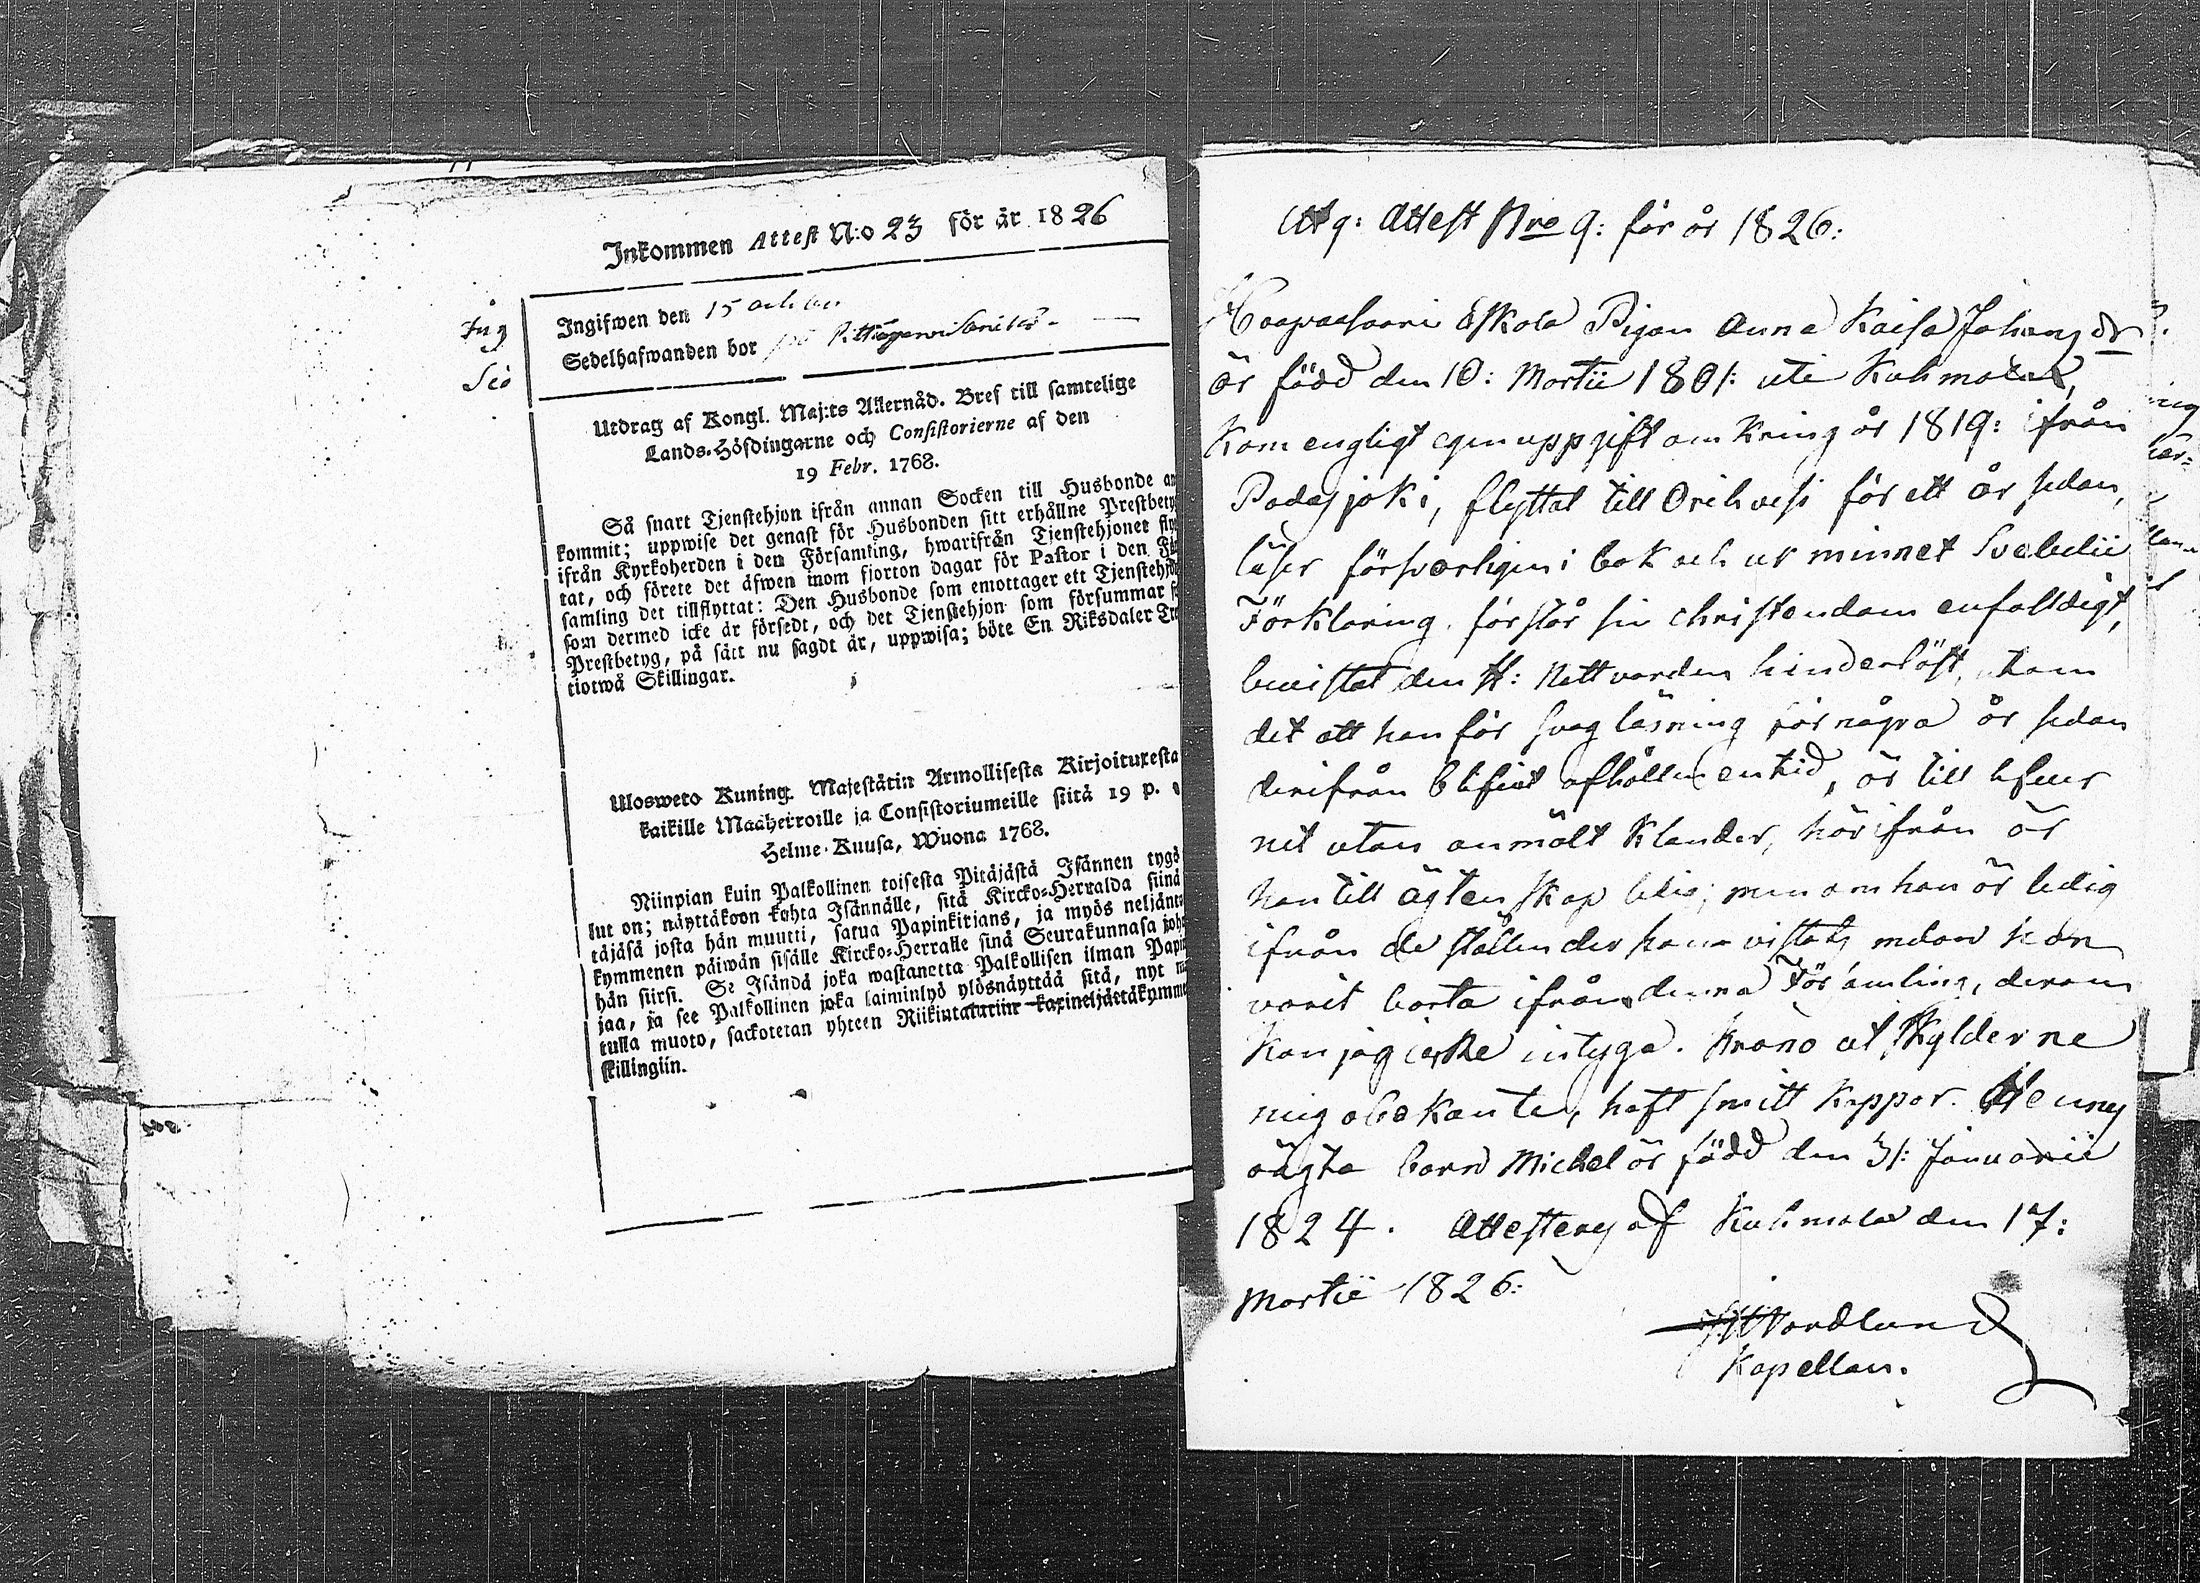 Inkommen Attest N:o 23 för år 1826
Ingifwen den 15
Sedelhafwanden bor
Utdrag af Kongl. Maj:ts Allernåd. Bref till samtelige
Lands-Höfdingarne och Consistorierne af den
19 Febr. 1768.
Så snart Tjenstehjon ifrån annan Socken till Husbonde
kommit; uppwise det genast för Husbonden sitt erhållne
ifrån Kyrkoherden i den Församling, hwarifrån Tjenstehjonet
tat, och förete det äfwen inom fjorton dagar för Pastor i den
samling det tillflyttat: Den Husbonde som emottager ett
som dermed icke är försedt, och det Tjenstehjon som försummar
Prestbetyg, på sätt nu sagdt är, uppwisa; böte En Riksdaler
tiotwå Skillingar.
Ulosweto Kuning. Majestätin Armollisesta Kirjoituxesta
kaikille Maaherroille ja Consistoriumeille siitä 19 p.
Helme-Kuusa, Wuona 1768.
Niinpian kuin Palkollinen toisesta Pitäjästä Isännen tygö
lut on; näyttäkoon kohta Isännälle, sitä Kircko-Herralda siinä
täjäsä josta hän muutti, satua Papinkirjans, ja myös
kymmenen päiwän sisälle Kircko-Herralle sinä Seurakunnasa
hän siirsi. Se Isändä joka wastanotta Palkollisen ilman
jaa, ja see Palkollinen joka laiminlyö ylösnäyttää sitä, nyt
tulla muoto, sackotetan yhteen Riikintalariin
skillingiin.
Utg: Attest Nro 9: för år 1826:
Haapasaari Eskola Pigan Anna Kaisa Johansdr
är född den 10: Martii 1801: uti Kuhmois,
Kom enligt egen uppgift omkring år 1819: ifrån
Padasjoki, flyttat till Orihvesi för ett år sedan,
läser försvarligen i bok och ur minnet Svebelii
Förklaring, förstår sin christendom enfaldigt,
bevistat den H: Nattvarden hinderlöst, utom
det att hon för svag läsning för några år sedan
derifrån blifvit afhållen en tid, är till lefver
net utan anmält klander, härifrån är
hon till ägtenskap ledig; men om hon är ledig
ifrån de ställen der hon vistats medan hon
varit borta ifrån denna Församling, derom
kan jag icke intyga. Krono utskylderne
mig obekante, haft smitt koppor. Hennes
oägta barn Michel är född den 31: Januarii
1824. Attesteras af Kuhmois den 17:
Martii 1826:
Nordlund
Kapellan.